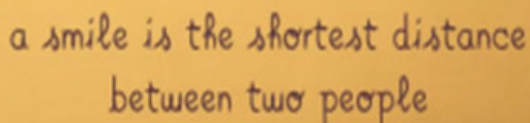 a smile is the shortest distance
between two people